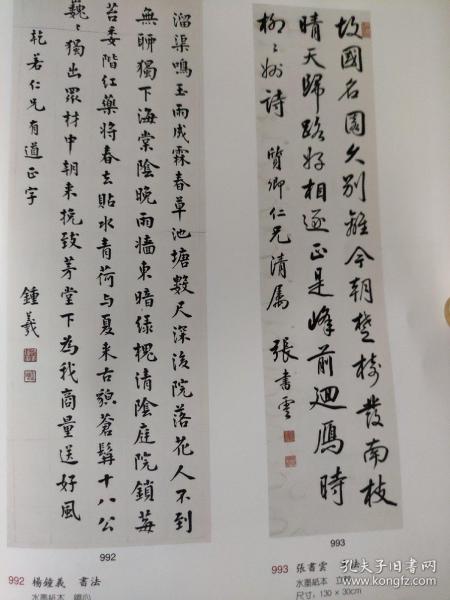 故國名園久別離今朝楚樹發南枝
晴天歸路好相逐正是峰前迴鴈時
柳〻州詩 質卿仁兄清属 張書雲
溜渠鳴玉雨成霖春草池塘數尺深後院落花人不到
無聊獨下海棠陰晚雨牆東暗綠槐清陰庭院鎖莓
苔委階紅藥將春去貼水青荷與夏来古貌蒼髯十八公
巍〻獨出眾材中朝来挽致茅堂下為我商量送好風
乾若仁兄有道正字
鍾羲
992
993
992 楊鍾羲 書法
水墨紙本 鏡心
993 張書雲
水墨紙本 立
尺寸：130 × 30cm
孔夫子旧书网